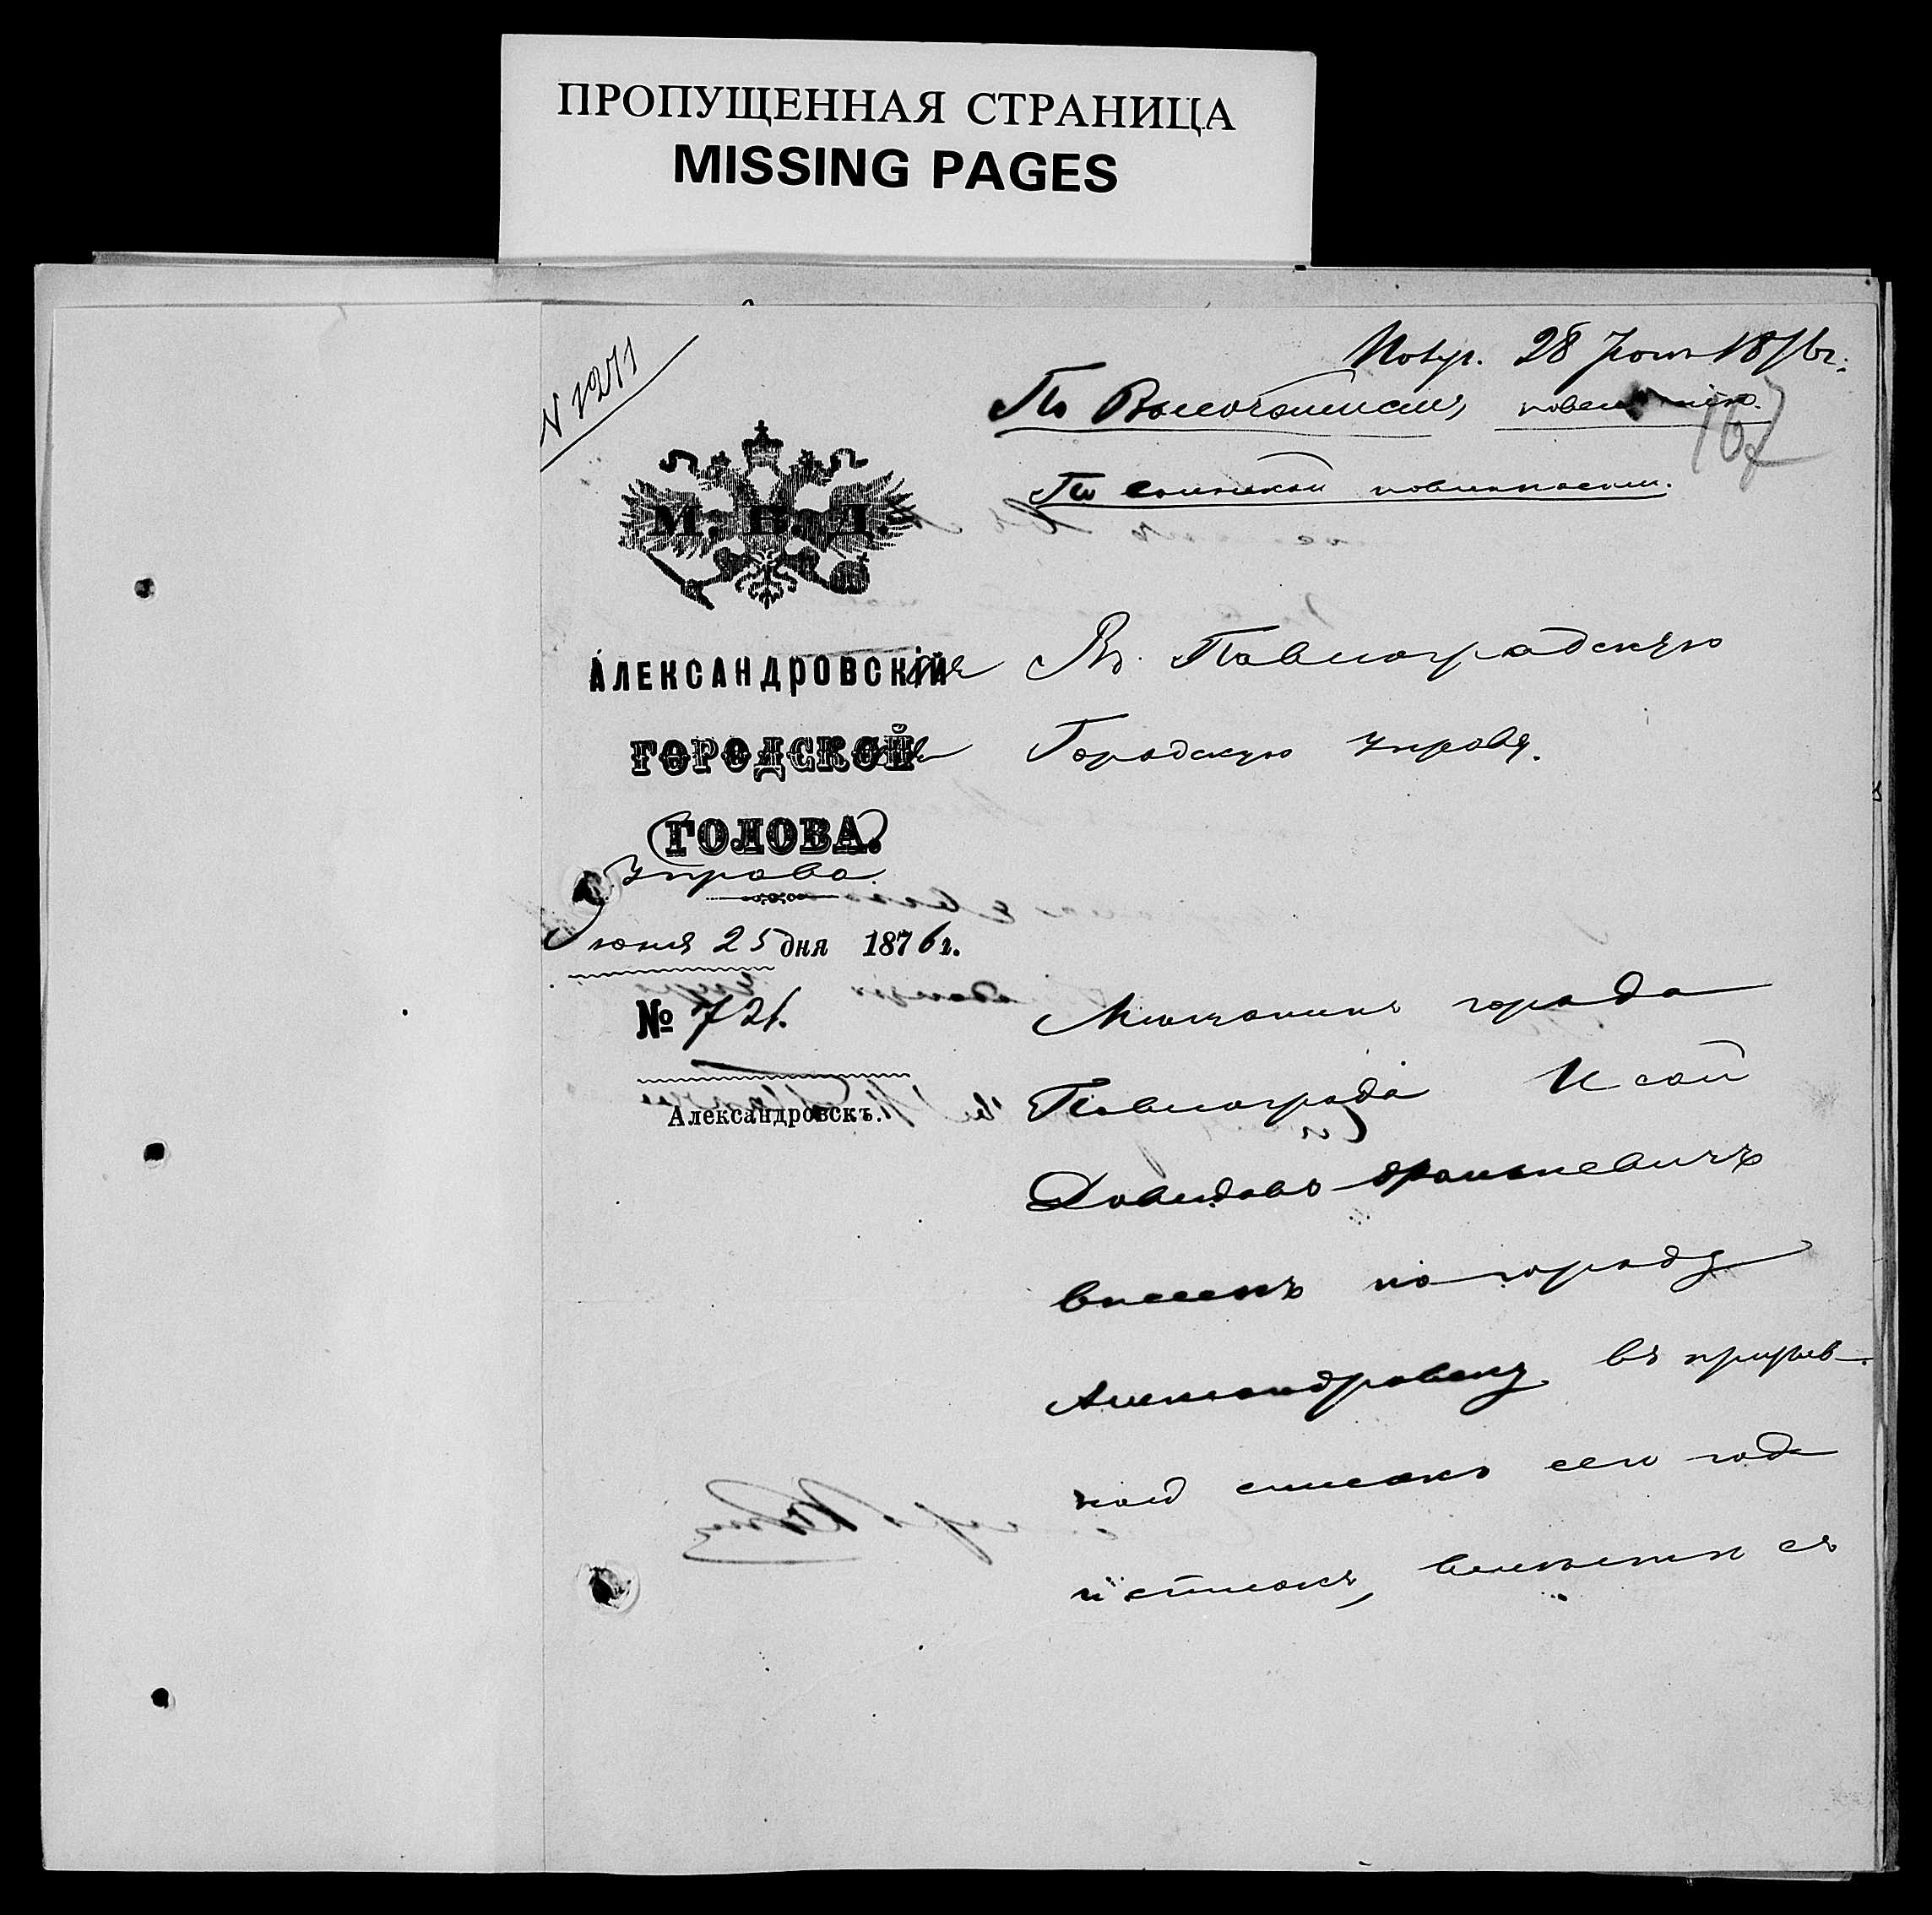 ПРОПУЩЕННАЯ СТРАНИЦА
MISSING PAGES
N 1271
28 1876г.
По Высочайшему повелѣнію.
167
По воинской повинности.
М. В. Д.
АЛЕКСАНДРОВСКІЙ
ГОРОДСКОЙ
ГОЛОВА.
Управа.
Іюня 25 дня 1876 г.
№ 721.
Александровскъ.
Въ Павлоградскую
Городскую Управу.
Мѣщанинъ города
Павлограда Исай
Давидовъ
внесенъ по городу
Александровску въ призыв-
ной списокъ сего года
съ